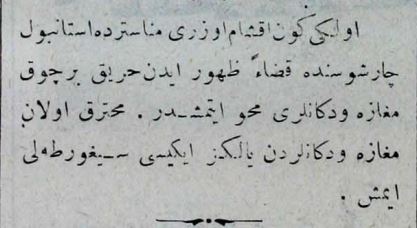 اولکی کون اقشام اوزری مناسترده استانبول
چارشوسنده قضاءً ظهور ایدن حریق برچوق
مغازه ودکانلری محو ایتمشـدر . محترق اولان
مغازه ودکانلردن یالکز ایکیسی سـیغورطه لی
ایمش .